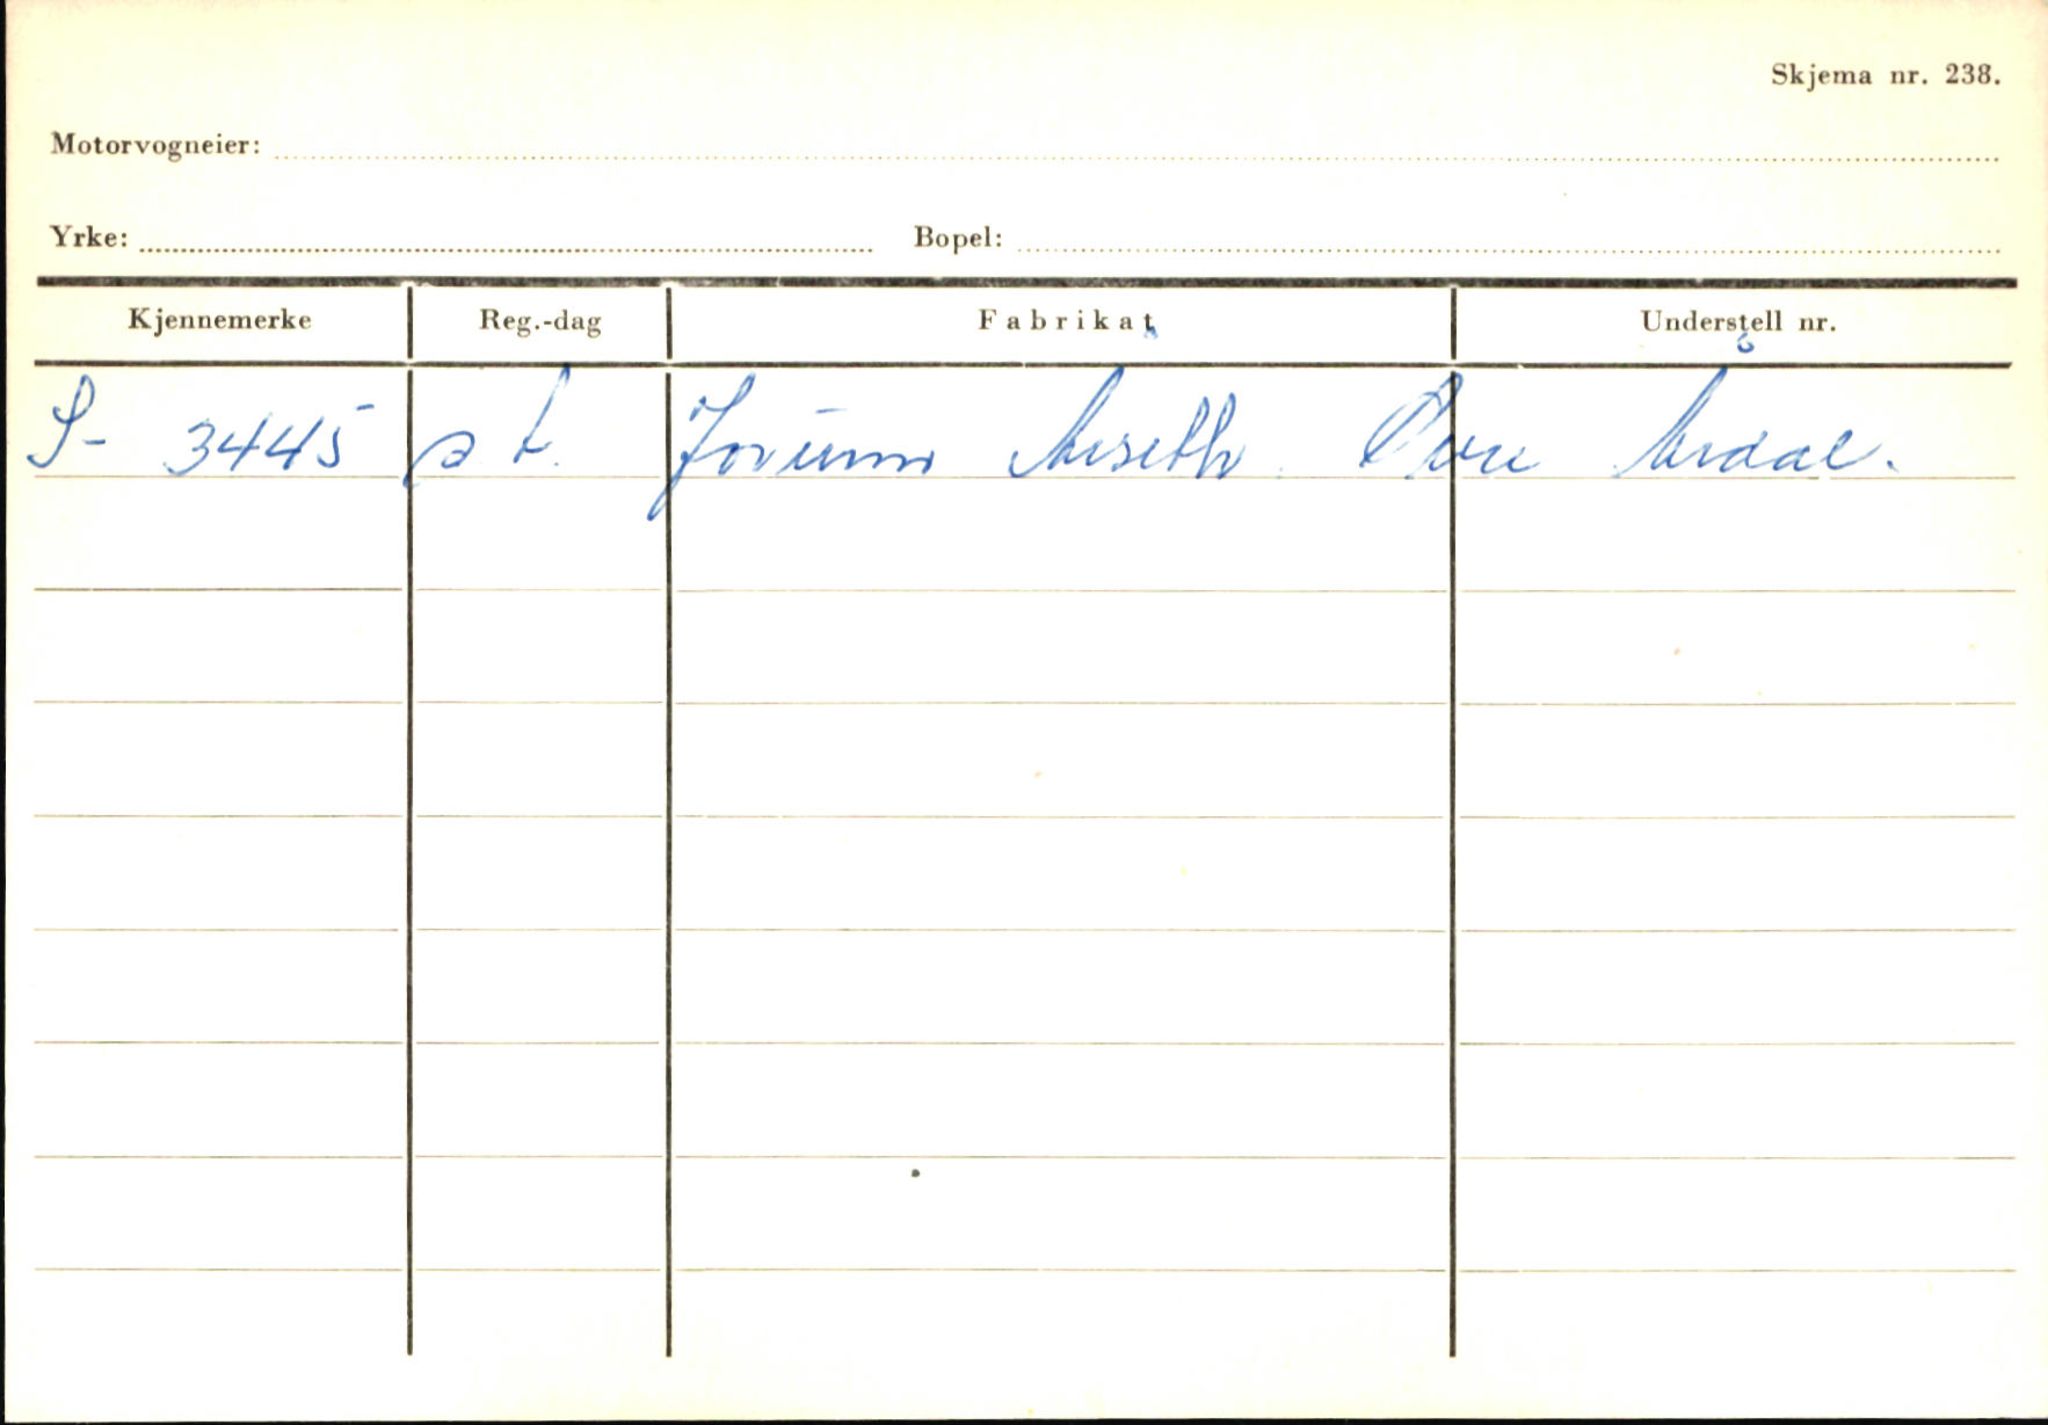 Skjema nr. 238.
Motorvogneier:
Yrke: Bopel:
Kjennemerke Reg.-dag Fabrikat Understell nr.
S- 3445 Jorunn Øvre Årdal.